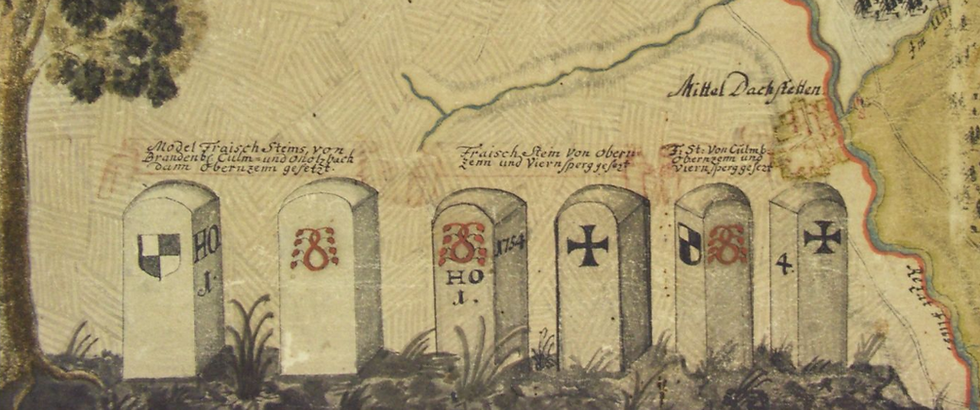 Mittel Dachstetten
Model Fraisch Steins, von
Brandenb. Culm= und Onoltzbach
dann Obernzenn gesetzt.
Fraisch Stein von Obern=
zenn und Viernsperg gesezt
F. St. von Culmb.
Obernzenn und
Viernsperg gesezt
HO
1.
1754
HO
1.
4.